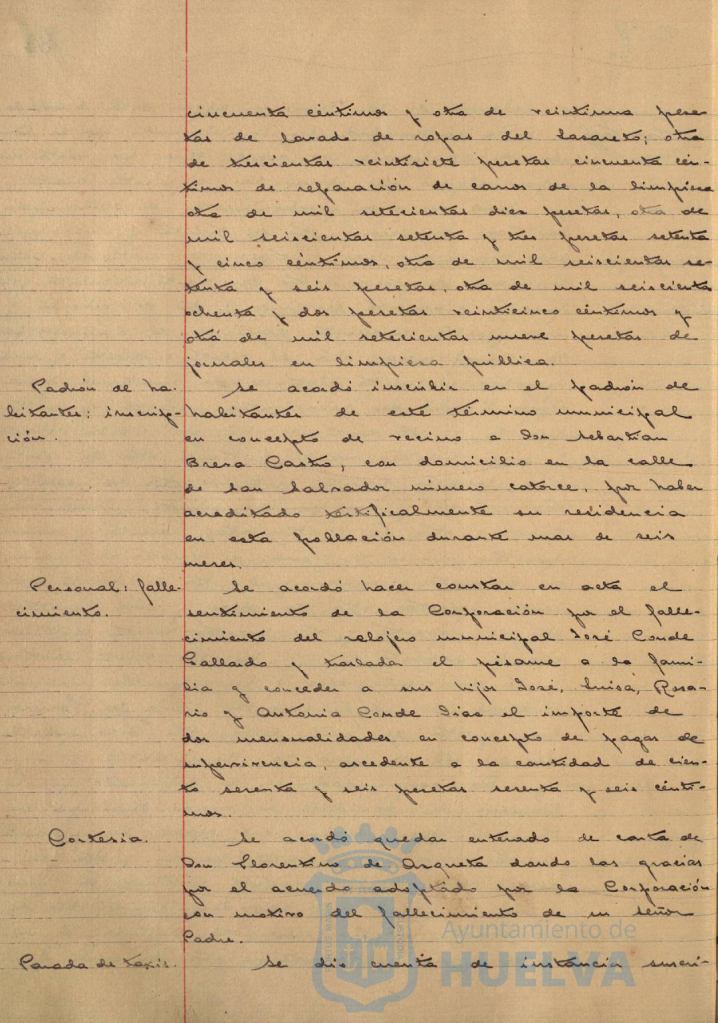 cincuenta céntimos y otra de veintiuna pese-
tas de lavado de ropas del Lazareto; otra
de trescientas veintisiete pesetas cincuenta cén-
timos de reparación de carros de la limpieza
otra de mil setecientas diez pesetas, otra de
mil seiscientas setenta y tres pesetas setenta
y cinco céntimos, otra de mil seiscientas se-
tenta y seis pesetas, otra de mil seiscientas
ochenta y dos pesetas veinticinco céntimos y
otra de mil setecientas nueve pesetas de
jornales en limpieza pública.
Padrón de ha-
bitantes: inscrip-
ción.
Se acordó inscribir en el padrón de
habitantes de este término municipal
en concepto de vecino a Don Sebastian
Castro, con domicilio en la calle
de San Salvador número catorce, por haber
acreditado testificalmente su residencia
en esta población durante mas de seis
meses.
Personal: falle-
cimiento.
Se acordó hacer constar en acta el
sentimiento de la Corporación por el falle-
cimiento del relojero municipal José Conde
Gallardo y trasladar el pésame a la fami-
lia y conceder a sus hijos José, Luisa, Rosa-
rio y Antonia Conde Dias el importe de
dos mensualidades en concepto de pagas de
supervivencia, ascedente a la cantidad de cien-
to sesenta y seis pesetas sesenta y seis cénti-
mos.
Cortesia.
Se acordó quedar enterado de carta de
Don Florentino de Azqueta dando las gracias
por el acuerdo adoptado por la Corporación
con motivo del fallecimiento de su señor
Padre.
Parada de taxis.
Se dio cuenta de instancia suscri-
Ayuntamiento de
HUELVA